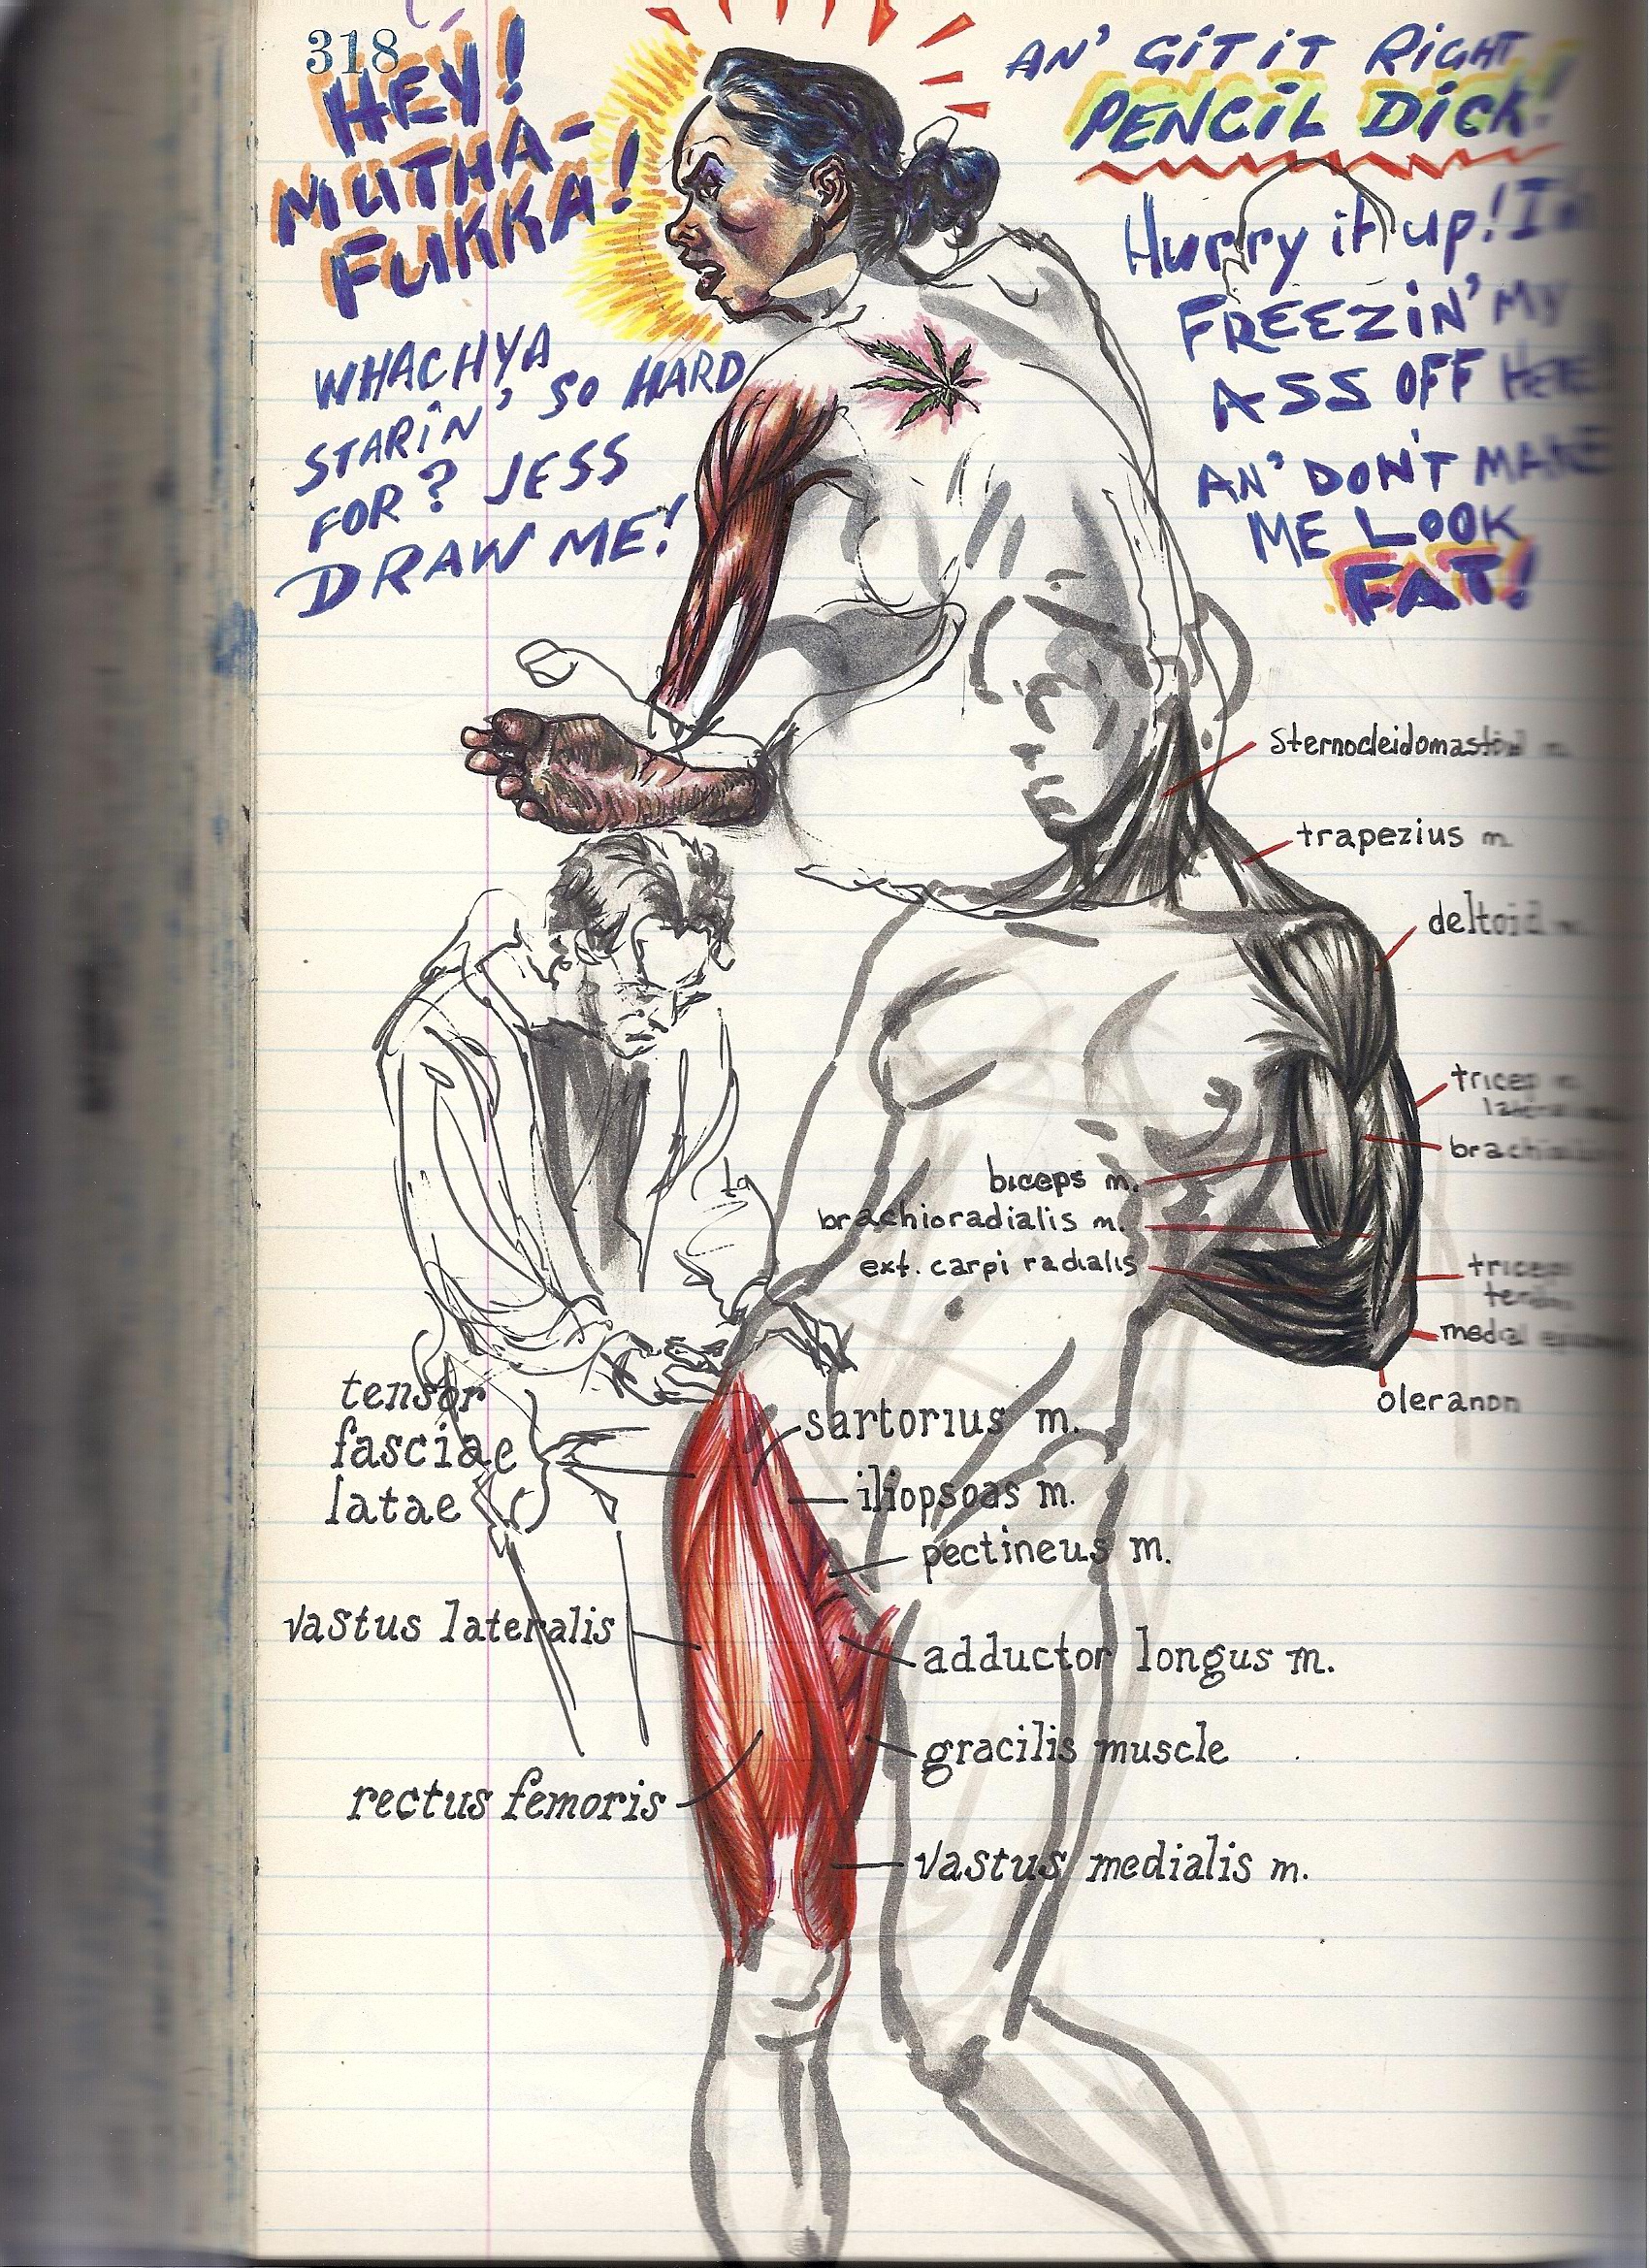 318
HEY!
MUTHA-
FUKKA!
WHACHYA
STARIN' SO HARD
FOR? JESS
DRAW ME!
AN' GIT IT RIGHT
PENCIL DICK!
Hurry it up! I'm
FREEZIN' MY
ASS OFF HERE
AN' DON'T MAKE
ME LOOK
FAT!
Sternocleidomastoid m.
trapezius m.
deltoid m.
tricep m.
lateral
brachialis
biceps m.
brachioradialis m.
ext. carpi radialis
triceps
tendon
medial
oleranon
tensor
fasciae
latae
sartorius m.
iliopsoas m.
pectineus m.
vastus lateralis
adductor longus m.
gracilis muscle
rectus femoris
vastus medialis m.